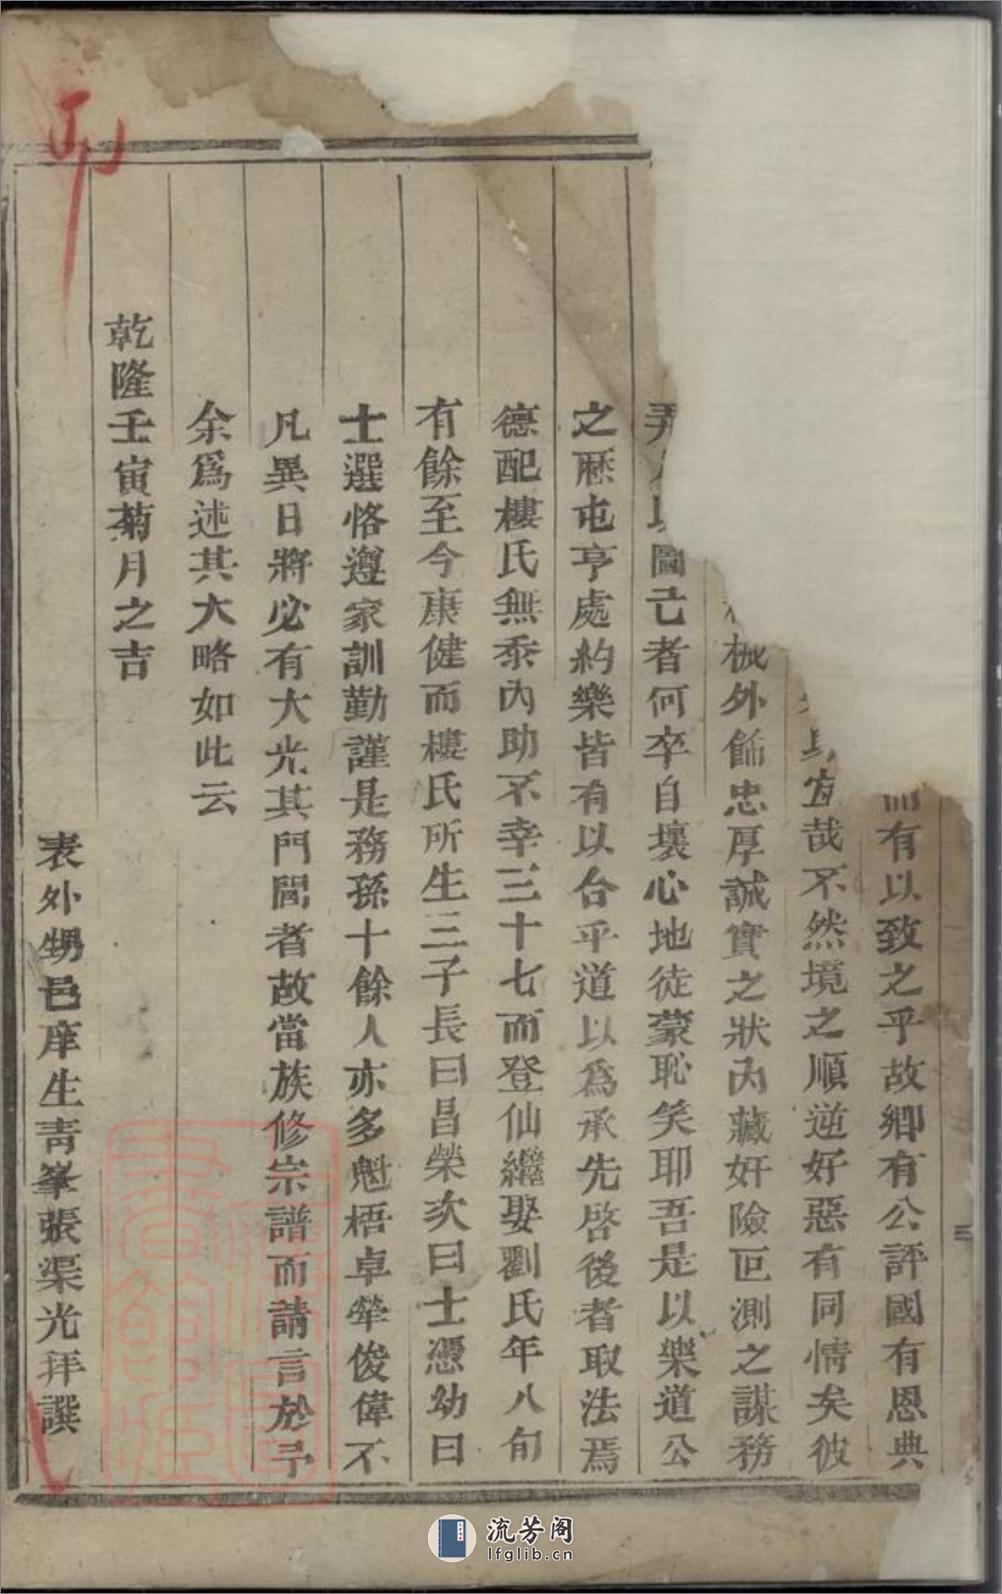 而有以致之乎故鄉有公評國有恩典
宜哉不然境之順逆好惡有同情矣彼
機外飾忠厚誠實之狀內藏奸險叵測之謀務
圖己者何卒自壞心地徒蒙恥笑耶吾是以樂道公
之厯屯亨處約樂皆有以合乎道以為承先啓後者取法焉
德配樓氏無忝內助不幸三十七而登仙繼娶劉氏年八旬
有餘至今康健而樓氏所生三子長曰昌榮次曰士憑幼曰
士選恪遵家訓勤謹是務孫十餘人亦多魁梧卓犖俊偉不
凡異日將必有大光其門閭者故當族修宗譜而請言於予
余爲述其大略如此云
乾隆壬寅菊月之吉
表外甥邑庠生青峯張渠光拜譔
流芳阁
lfglib.cn